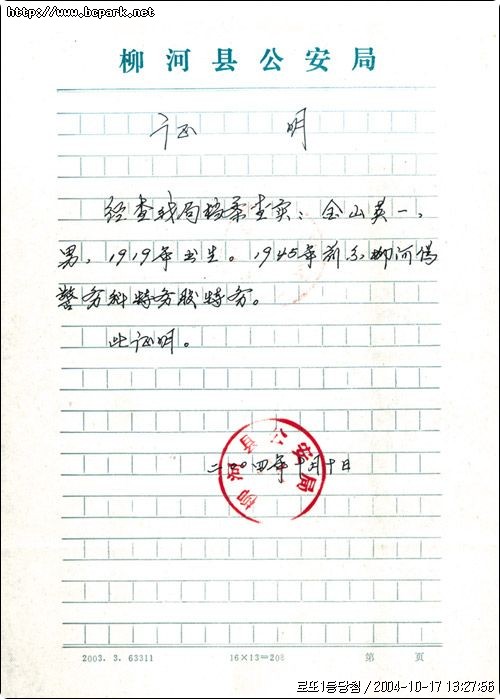 http://www.bcpark.net
柳河县公安局
证 明
经查我局档案查实：金山英一，
男，1919年出生。1945年前系柳河伪
警务科特务股特务。
此证明。
二〇〇四年 月十日
柳河县公安局
2003. 3. 63311 16×13=208 第 页
로또1등당첨 / 2004-10-17 13:27:56